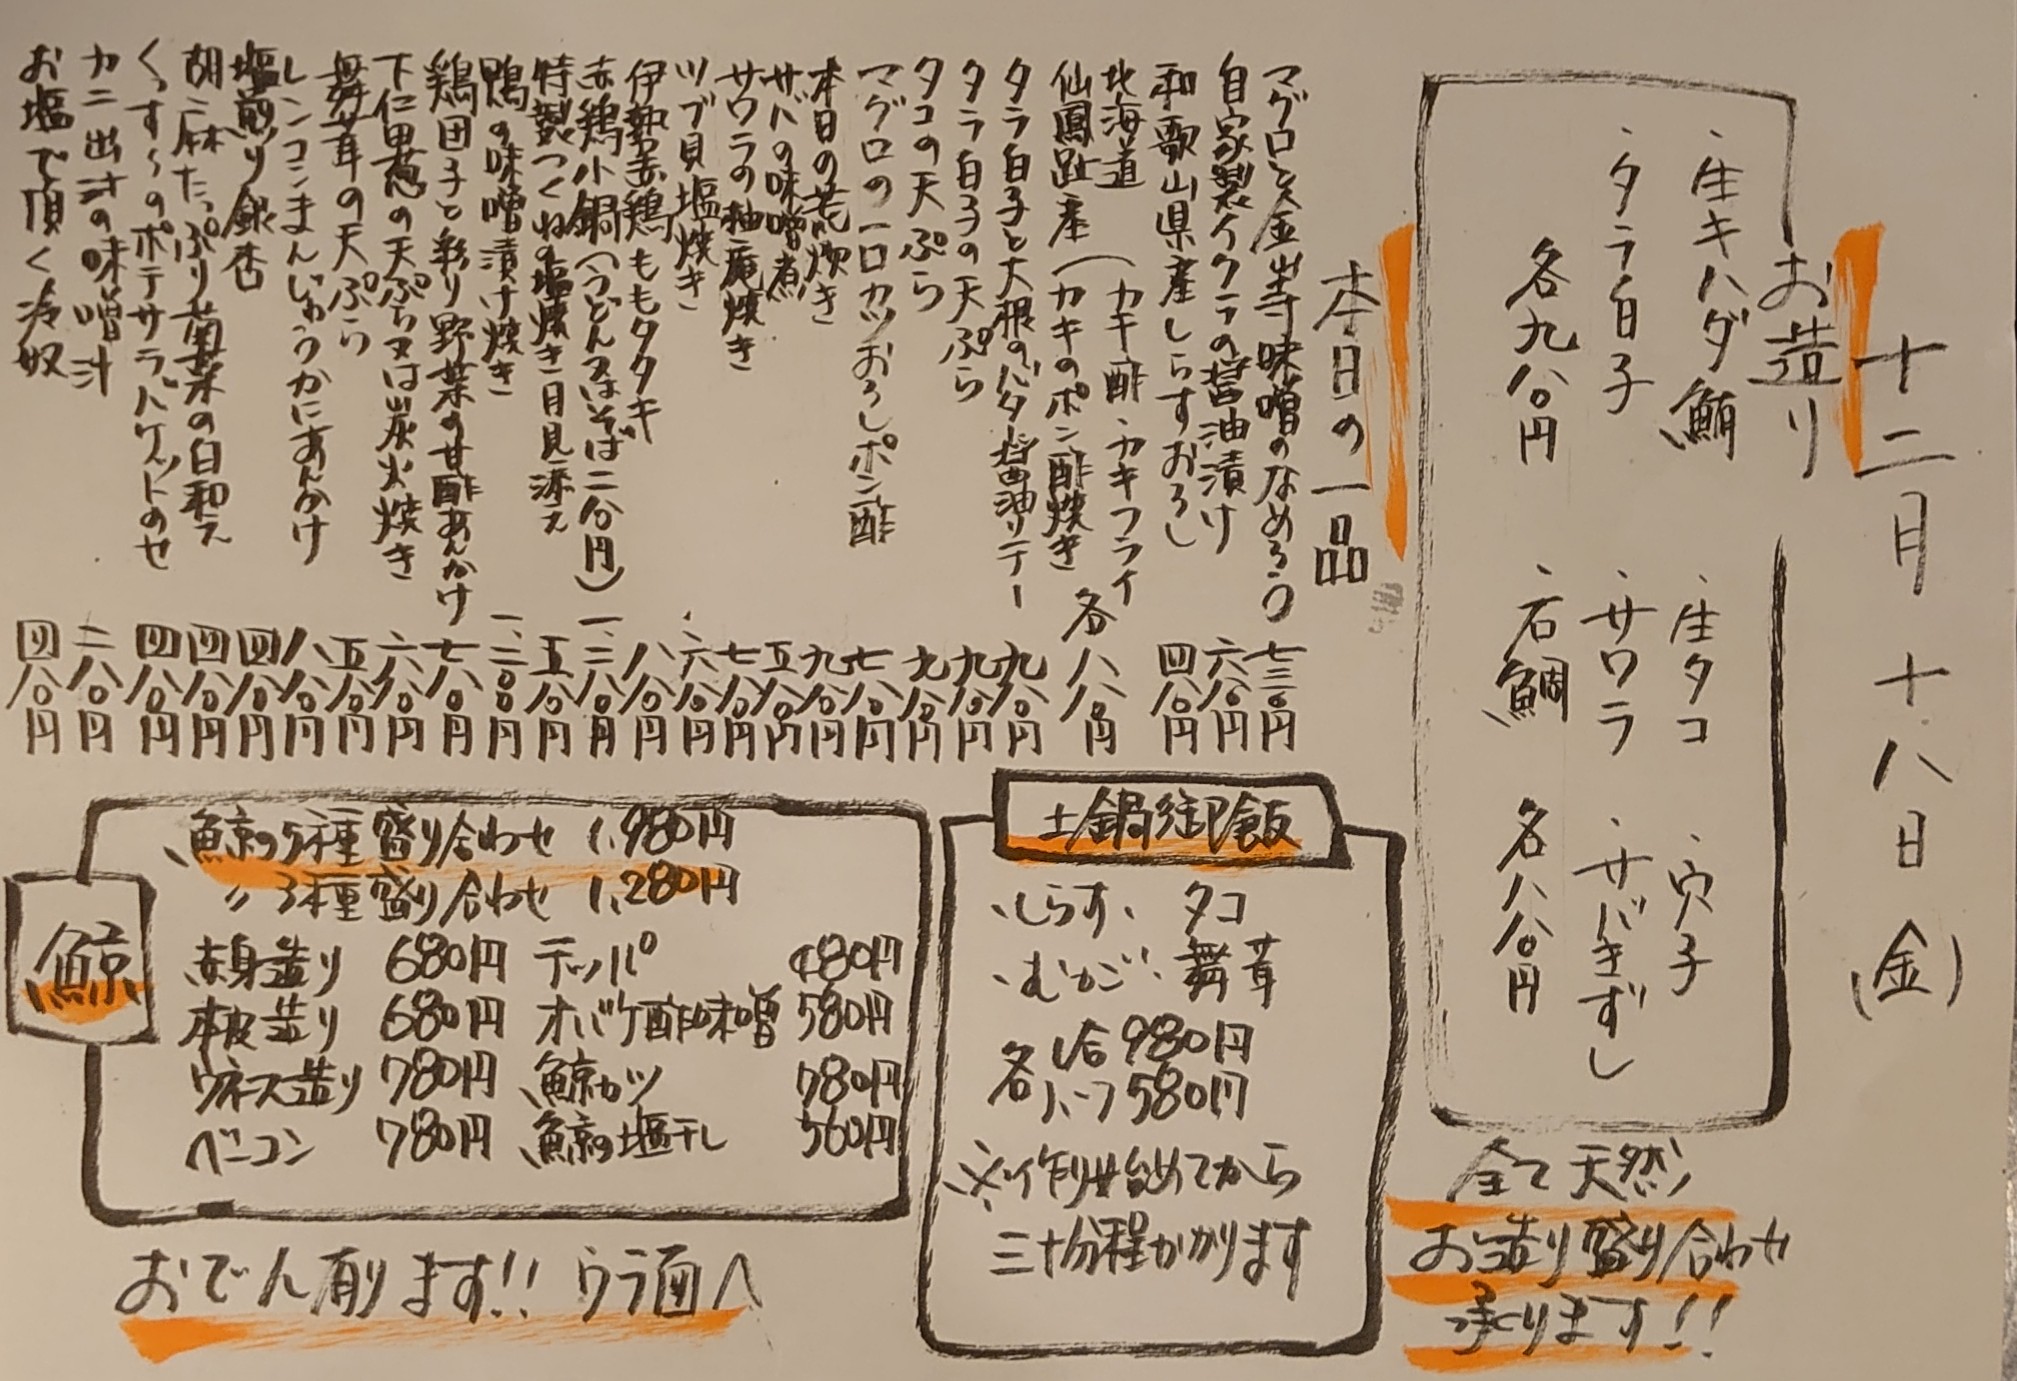 十二月十八日(金)
お造り
・生キハダ鮪 ・生タコ ・穴子
・タラ白子 ・サワラ ・サバきずし
各九八〇円 ・石鯛 各八八〇円
全て天然
お造り盛り合わせ
承ります!!
本日の一品
マグロと金山寺味噌のなめろう 七三〇円
自家製イクラの醤油漬け 六八〇円
和歌山県産しらすおろし 四八〇円
北海道 (カキ酢・カキフライ
仙鳳趾産 (カキのポン酢焼き 各八八〇円
タラ白子と大根のバター醤油ソテー 九八〇円
タラ白子の天ぷら 九八〇円
タコの天ぷら 九八〇円
マグロの一口カツおろしポン酢 七八〇円
本日の荒炊き 九八〇円
サバの味噌煮 五八〇円
サワラの柚庵焼き 七八〇円
ツブ貝塩焼き 六八〇円
伊勢赤鶏ももタタキ 八八〇円
赤鶏小鍋(うどん又はそば二八〇円) 一、二八〇円
特製つくねの塩焼き月見添え 五八〇円
鴨の味噌漬け焼き 一、二〇〇円
鶏団子と彩り野菜の甘酢あんかけ 七八〇円
下仁田葱の天ぷら又は炭火焼き 六八〇円
舞茸の天ぷら 五八〇円
レンコンまんじゅうかにあんかけ 八八〇円
塩煎り銀杏 四八〇円
胡麻たっぷり菊菜の白和え 四八〇円
くっす〜のポテサラバケットのせ 四八〇円
カニ出汁の味噌汁 二八〇円
お塩で頂く冷奴 四八〇円
土鍋御飯
・しらす・タコ
・むかご・舞茸
各 1合 980円
ハーフ 580円
※作り始めてから
三十分程かかります
鯨
鯨の5種盛り合わせ 1,980円
〃3種盛り合わせ 1,280円
赤身造り 680円 テッパ 480円
本皮造り 680円 オバケ酢味噌 580円
ウネス造り 780円 鯨カツ 780円
ベーコン 780円 鯨の塩干し 560円
おでん有ります!! ウラ面へ